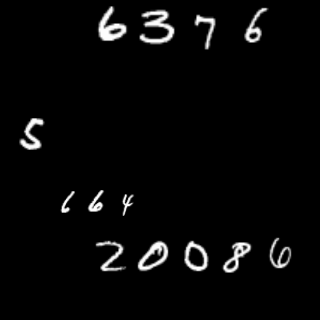 6376
5
664
20086